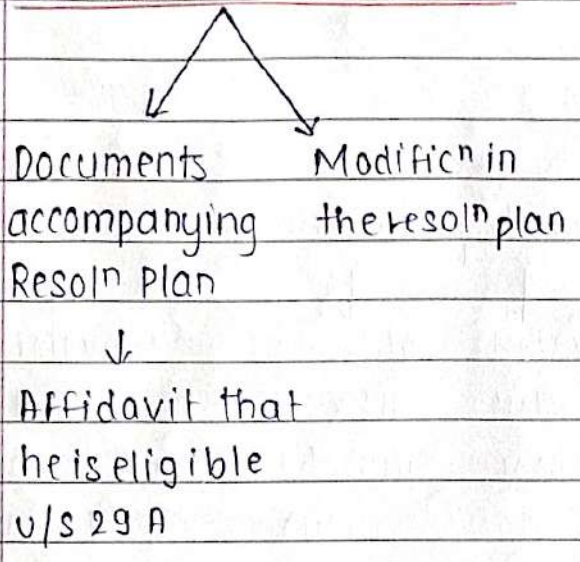 Documents
accompanying
Resolⁿ Plan
Modificⁿ in
the resolⁿ plan
Affidavit that
he is eligible
u/s 29A